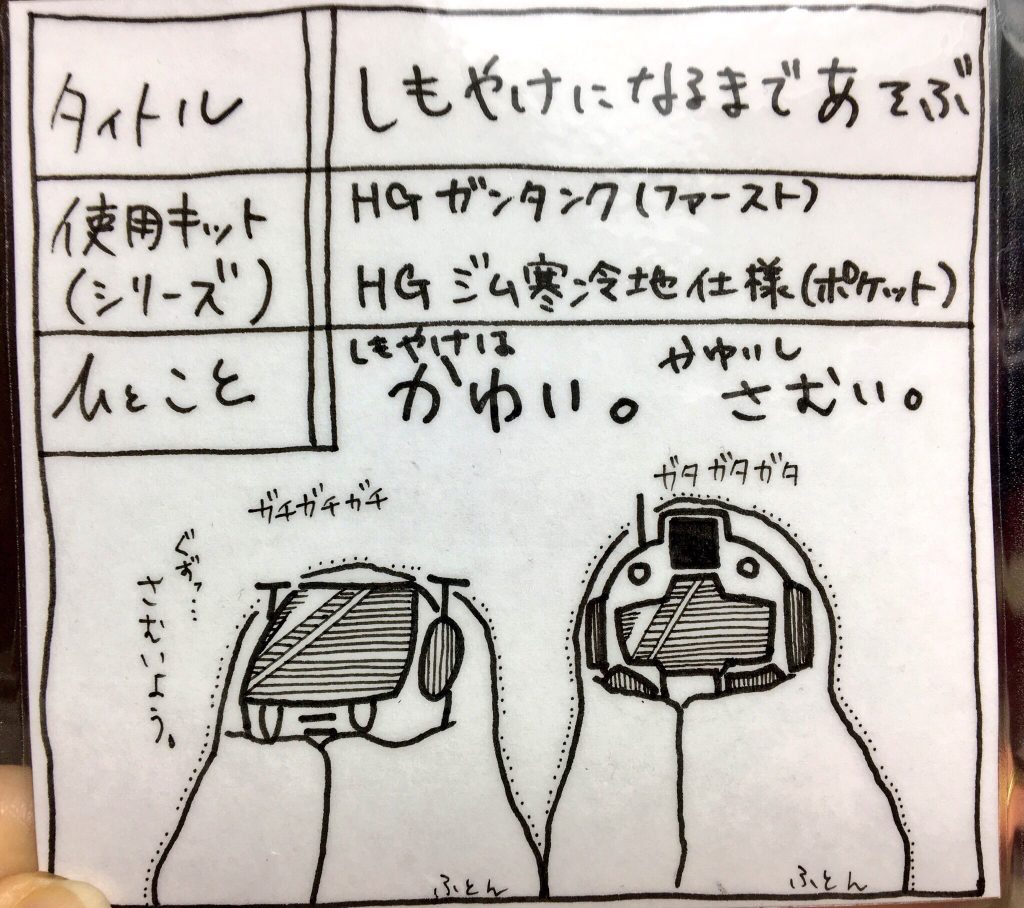 タイトル
しもやけになるまであそぶ
使用キット
(シリーズ)
HG ガンタンク(ファースト)
HG ジム寒冷地仕様(ポケット)
ひとこと
しもやけは
かゆい。
かゆいし
さむい。
ガチガチガチ
ガタガタガタ
ぐすっ…
さむいよう。
ふとん
ふとん